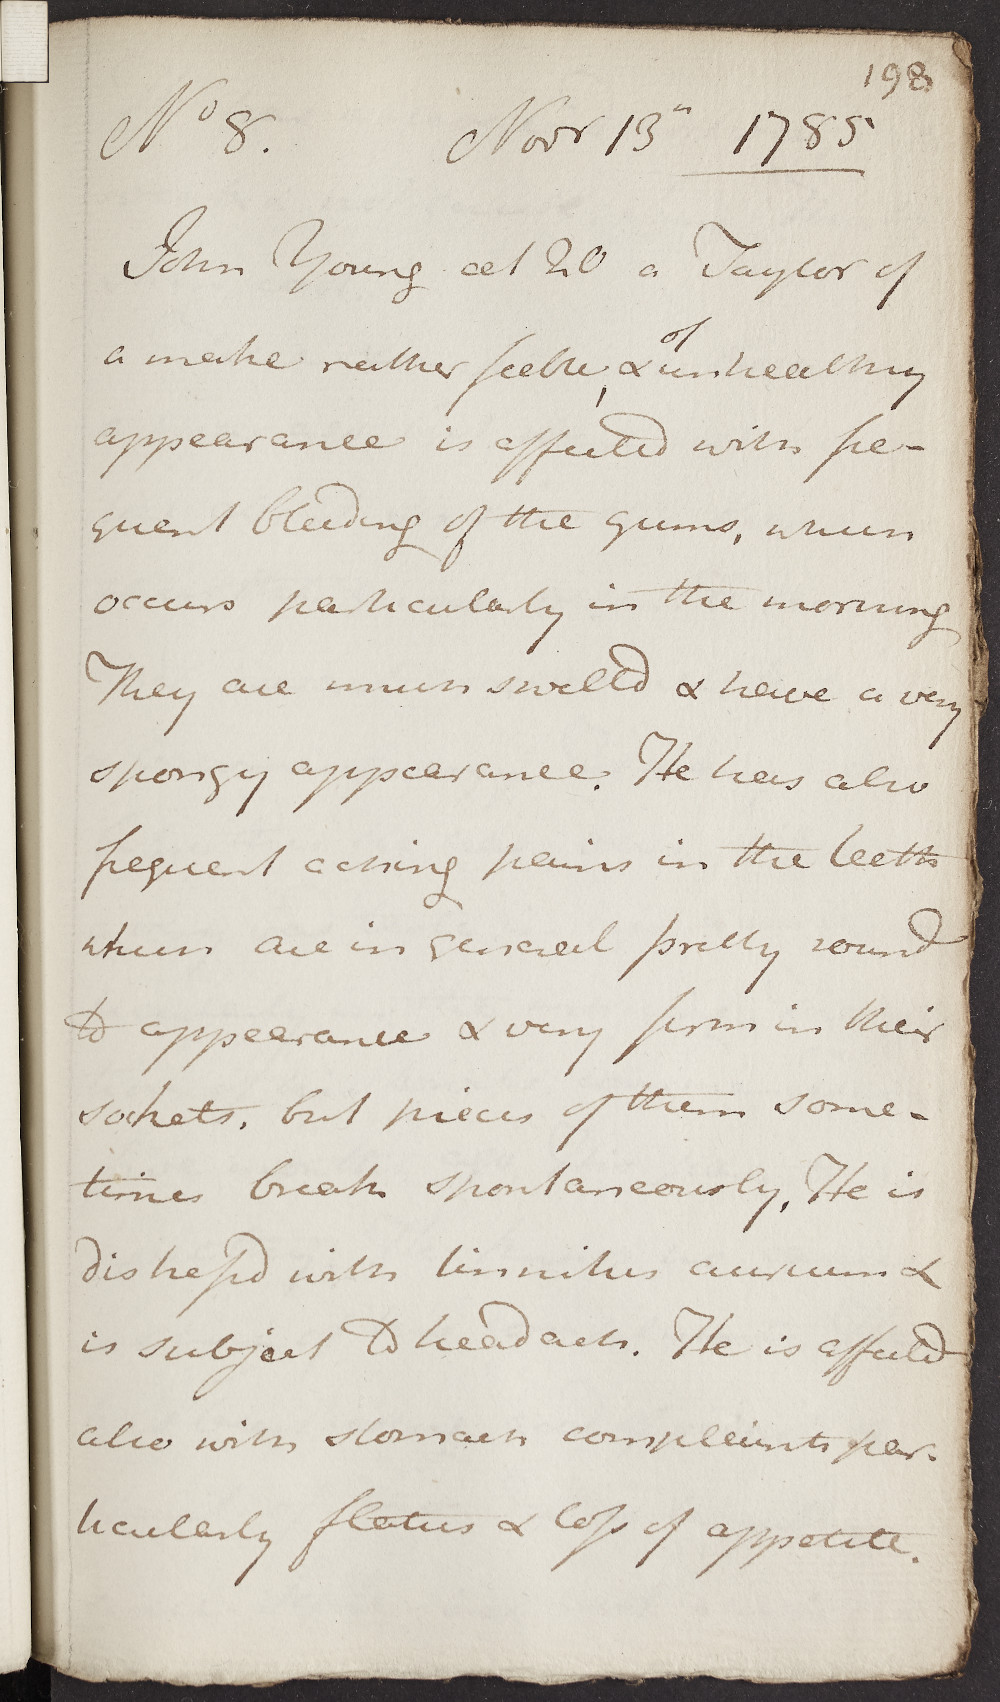 198
No 8. Novr 13th 1785
John Young aet 20 a Taylor of
a make rather feeble, & of unhealthy
appearance is affected with fre-
quent bleeding of the gums, which
occurs particularly in the morning
They are much swelld & have a very
spongy appearance. He has also
frequent aching pains in the teeth
which are in general pretty sound
to appearance & very firm in their
sockets, but pieces of them some-
times break spontaneously, He is
distressd with tinnitus aurium &
is subject to headach. He is affected
also with stomach complaints par-
ticularly flatus & loss of appetite.